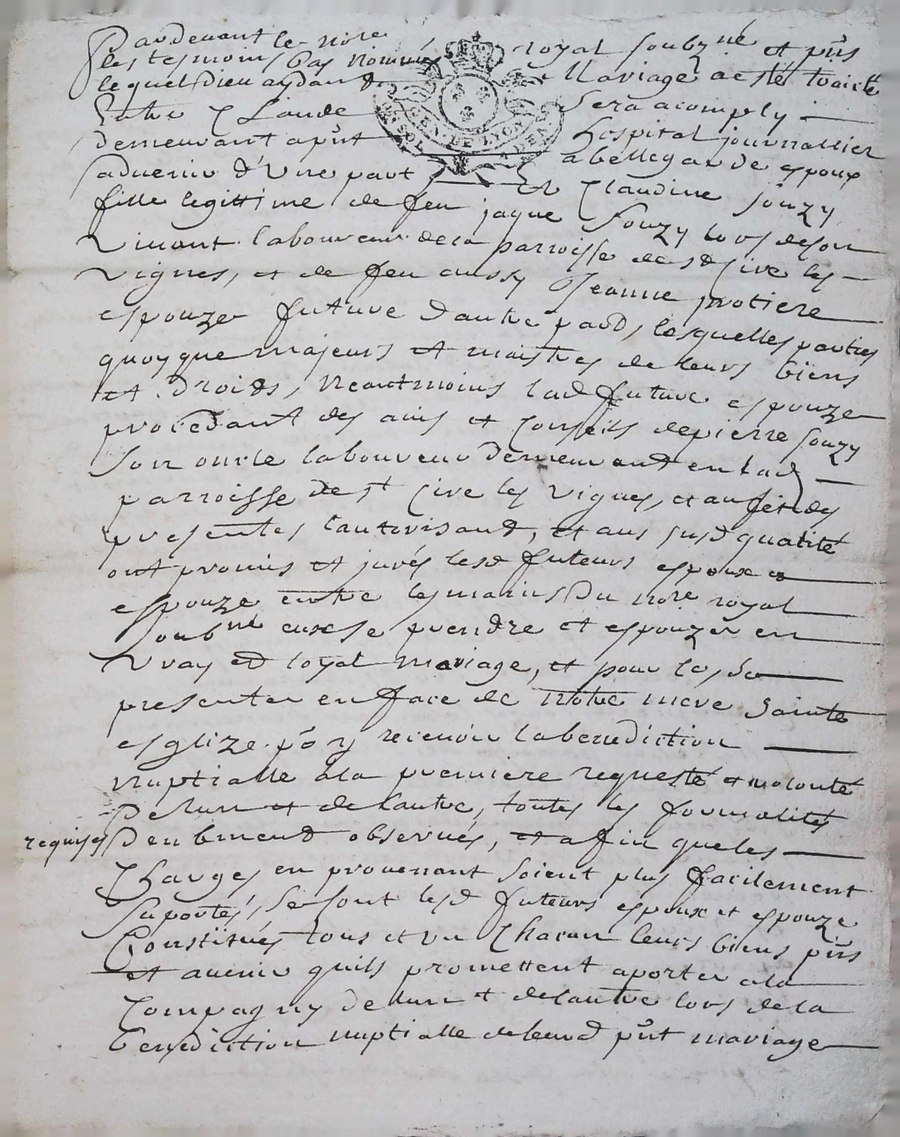 Pardevant le nore royal soubzné et pnts
les tesmoins bas nommés Mariage a esté traicté
lequel Dieu aydant sera acomply
Entre Claude hospital journallier
demeurant a pnt a bellegarde espoux
advenir d'une part, Et Claudine souzy
fille legittime de feu jaque souzy lors de son
vivant laboureur de la parroisse de st Cire les
vignes, et de feu aussy Jeanne protiere
espouze future d'autre part, lesquelles parties
quoyque majeurs et maistres de leurs biens
et droids, neantmoins lad future espouze
procedant des avis et Conseils de pierre souzy
son oncle laboureur demeurand en lad
parroisse de st Cire les vignes, et au fet des
presentes l'autorisand, et aus susd qualité
ont promis et jurés lesd futeurs espoux et
espouze entre les mains Du nore royal
soubné eux se prendre et espouzer en
vray et loyal mariage, et pour ce se
presenter en face de notre mere sainte
esglize p̃o y recevoir la benediction
nuptialle a la premiere requeste et volonté
De lun et de lautre, toutes les formalités
requises Deubmend observés, et afin que les
Charges en provenant soient plus facilement
suportés, se sont lesd futeurs espoux et espouze
Constitués tous et un Chacun leurs biens pnts
et avenir quils promettent aporter a la
Compagny de lun et de lautre lors de la
benediction nuptialle de leurd pnt mariage
GEN. DE LYON